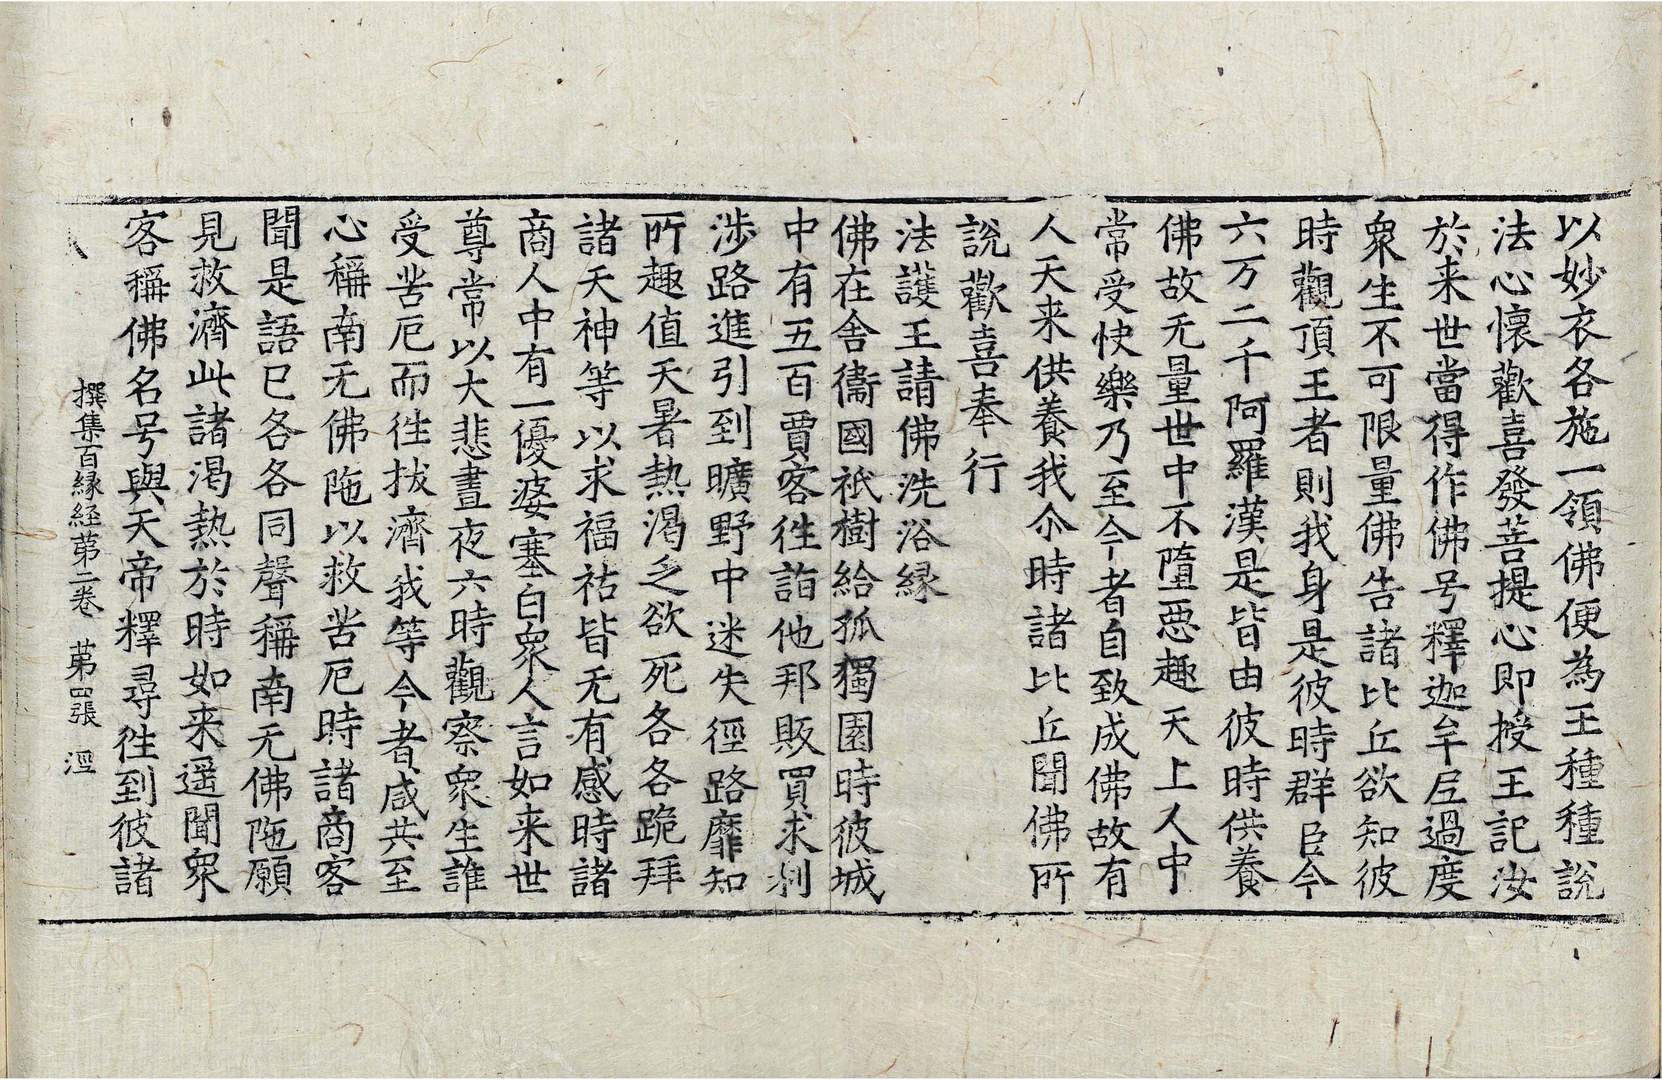 以妙衣各施一領佛便為王種種說
法心懷歡喜發菩提心即授王記汝
於来世當得作佛号釋迦牟尼過度
衆生不可限量佛告諸比丘欲知彼
時觀頂王者則我身是彼時群臣今
六万二千阿羅漢是皆由彼時供養
佛故无量世中不墮惡趣天上人中
常受快樂乃至今者自致成佛故有
人天来供養我尒時諸比丘聞佛所
說歡喜奉行
法護王請佛洗浴縁
佛在舍衞國祇樹給孤獨園時彼城
中有五百賈客徃詣他邦販買求利
涉路進引到曠野中迷失徑路靡知
所趣值天暑熱渴乏欲死各各跪拜
諸天神等以求福祜皆无有感時諸
商人中有一優婆塞白衆人言如来世
尊常以大悲晝夜六時觀察衆生誰
受苦厄而徃拔濟我等今者咸共至
心稱南无佛陁以救苦厄時諸商客
聞是語已各各同聲稱南无佛陁願
見救濟此諸渴熱於時如来遥聞衆
客稱佛名号與天帝釋尋徃到彼諸
撰集百縁経第二卷 第四張 涇